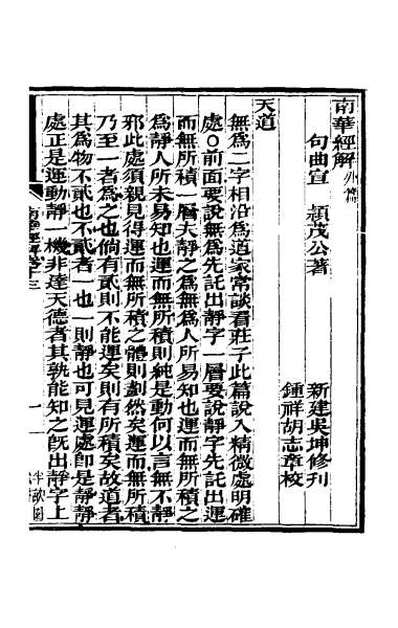 南華經解 外篇
句曲宣 穎茂公著
新建吳坤修刊
鍾祥胡志章校
天道
無爲二字相沿爲道家常談看莊子此篇說入精微處明確
處○前面要說無爲先託出靜字一層要說靜字先託出運
而無所積一層夫靜之爲無爲人所易知也運而無所積之
爲靜人所未易知也運而無所積則純是動何以言無不靜
邪此處須親見得運而無所積之體則劃然矣運而無所積
乃至一者爲之也倘有貳則不能運矣則有所積矣故道者
其爲物不貳也不貳者一也一則靜也可見運處卽是靜靜
處正是運動靜一機非達天德者其孰能知之旣出靜字上
南華經解卷十三
一
半畝園